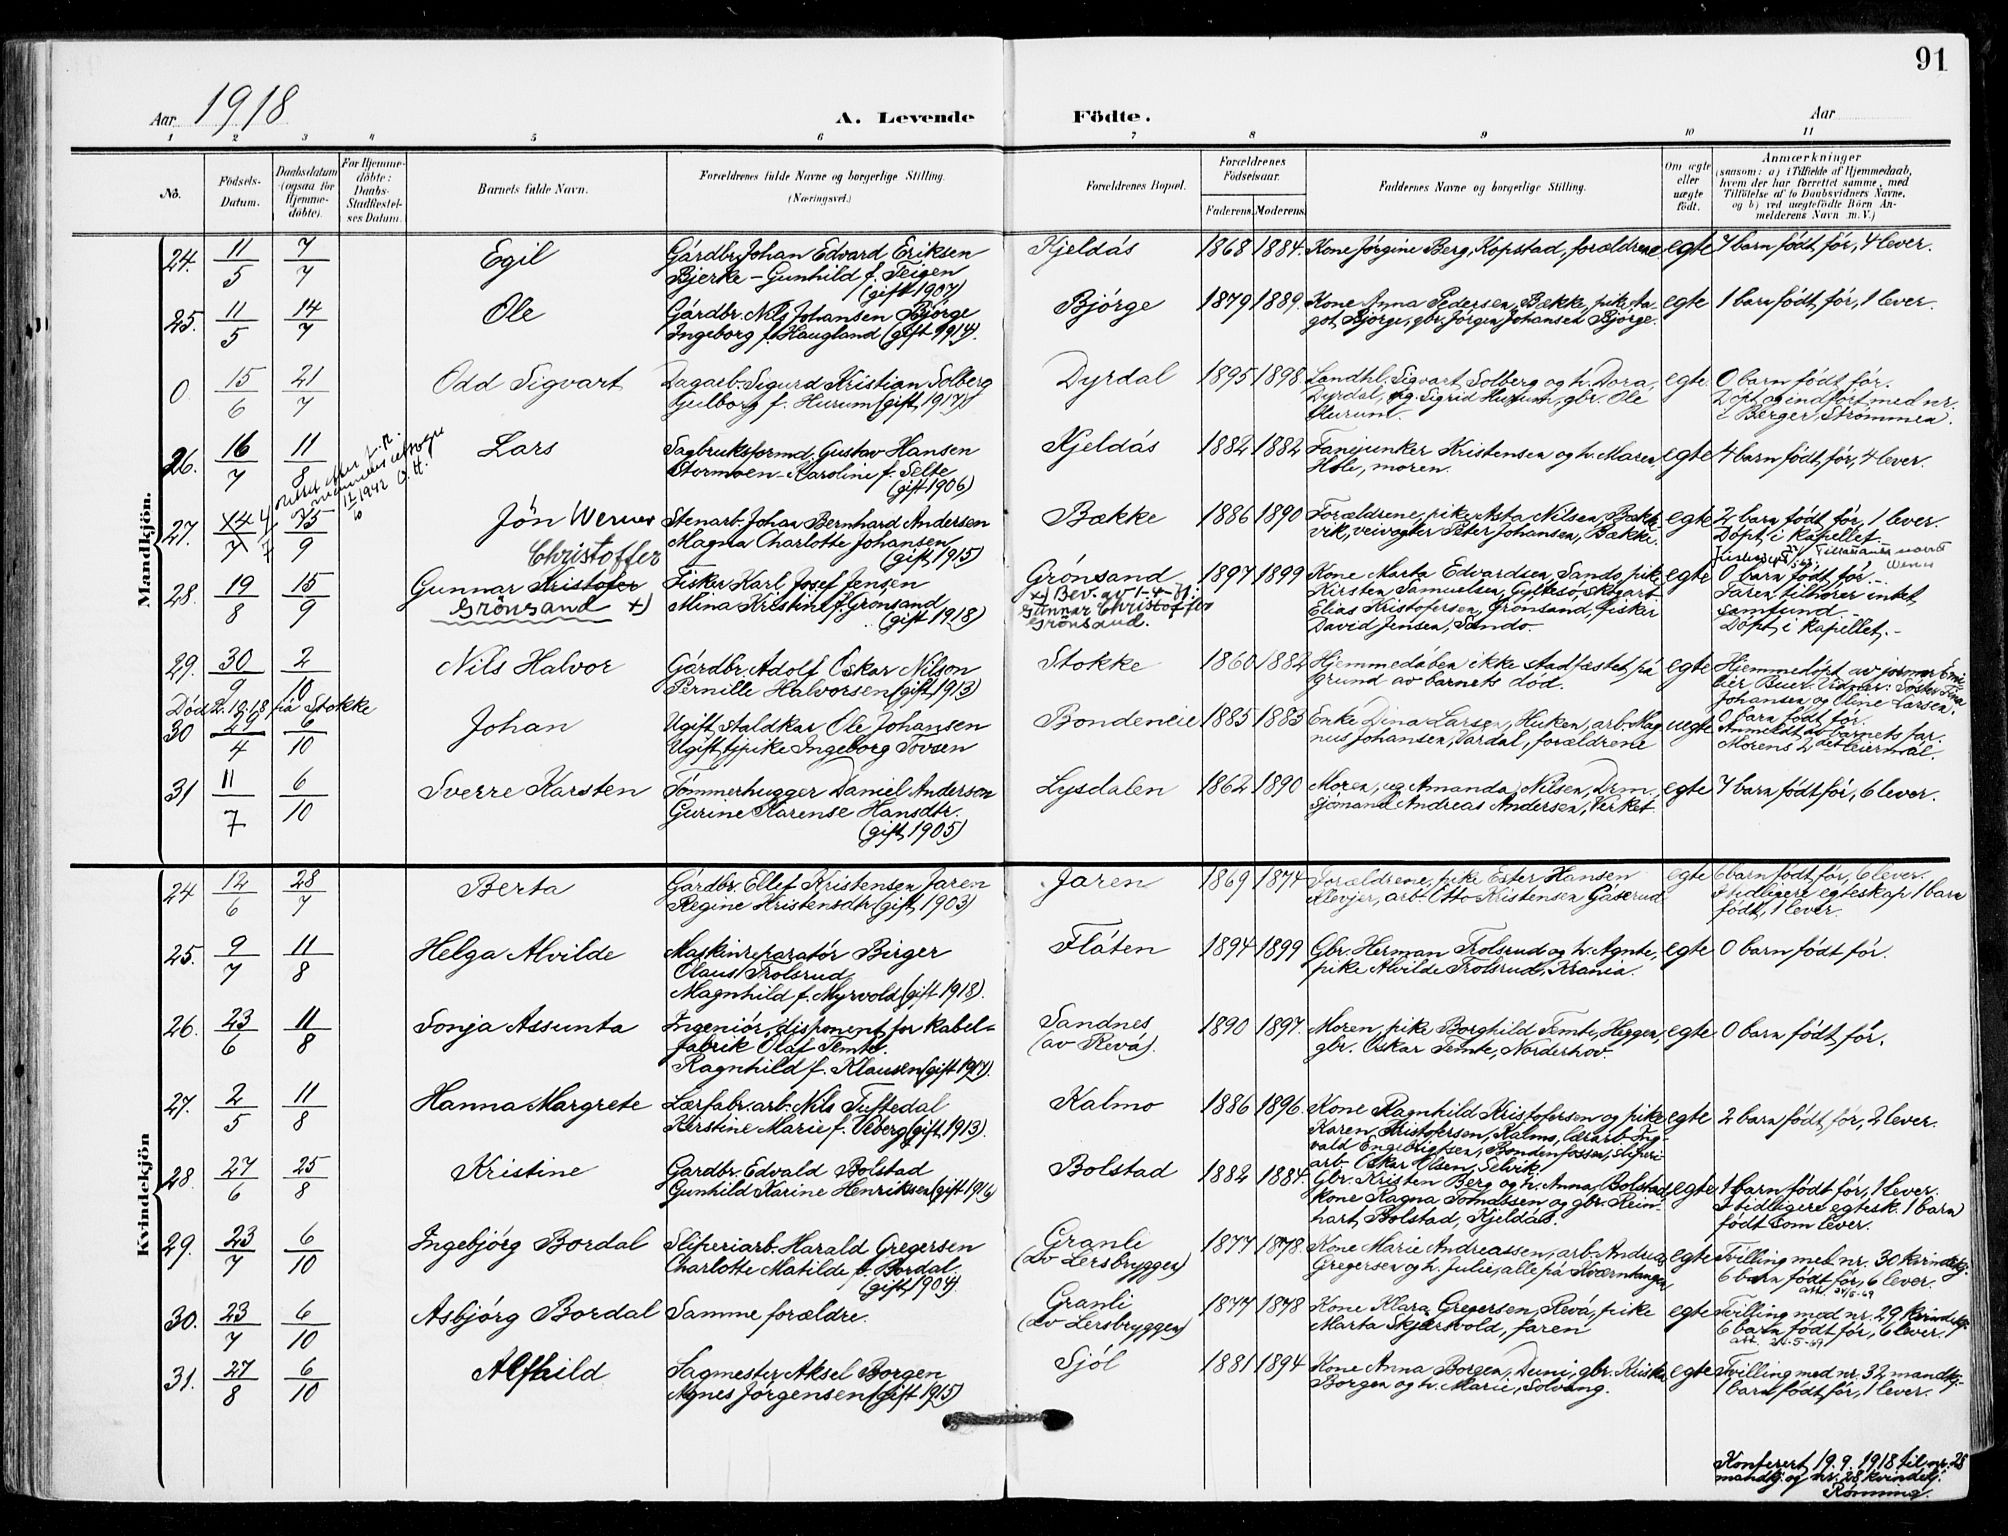 91
Aar 1918
A. Levende Födte.
Aar
1 2 3 4 5 6 7 8 9 10 11
No.
Födsels-Datum.
Daabsdatum (ogsaa for Hjemmedöbte).
For Hjemmedöbte: Daabs-Stadfæstelses Datum.
Barnets fulde Navn.
Forældrenes fulde Navne og borgerlige Stilling. (Næringsvei.)
Forældrenes Bopæl.
Forældrenes Födselsaar.
Faderens. Moderens.
Faddernes Navne og borgerlige Stilling.
Om ægte eller uægte födt.
Anmærkninger
(saasom: a) i Tilfælde af Hjemmedaab, hvem der har forrettet samme, med Tilföielse af to Daabsvidners Navne, og b) ved uægtefödte Börn Anmelderens Navn m. V.)
Mandkjön.
24. 11/5 7/7 Egil Gårdbr. Johan Edvard Eriksen Kjeldås 1868 1884. Kone Jørgine Berg, Kopstad, forældrene egte 7 barn født før, 4 lever.
Bjerke - Gunhild f. Teigen
(gift 1907)
25. 11/5 14/7 Ole Gårdbr. Nils Johansen Bjørge Bjørge 1879 1889. Kone Anna Pedersen, Bække, pike egte 1 barn født før, 1 lever.
Ingeborg f. Haugland (gift 1914). got Bjørge, gbr. Jørgen Johansen Bjørge.
0 15/6 21/7 Odd Sigvart Dagarb. Sigurd Kristian Solberg Dyrdal 1895 1898. Landhl. Sigvart Solberg og h. Dora, egte. 0 barn født før.
f. Hurum (gift 1917) Dyrdal, Sigrid Hurum, gbr. Ole Døpt og indført med nr.
Hurum. i Berger, Strømmen.
26. 16/7 11/8 Lars Sagbruksformd. Gustav Hansen Kjeldås 1882 1882 Fanejunker Kristensen og h. Maren egte 4 barn født før, 4 lever.
Stormoen - Karoline f. Selte Hole, moren.
(gift 1906)
1942 O.H.
27. 14/7 4/7 15/9 Jön Werner Stenarb. Johan Bernhard Andersen Bække 1886 1890 Forældrene, pike Asta Nilsen, egte 2 barn født før, 1 lever.
Magna Charlotte Johansen vik, veivogter Peter Johansen, Bække. Døpt i kapellet.
(gift 1915)
28. 19/8 15/9 Gunnar Kristofer Christoffer Fisker Karl Josef Jensen Grønsand 1897 1899 Kone Marta Edvardsen, Sando, pike egte 0 barn født før.
Grönsand x) Mina Kristine f. Grønsand x) Bev. av 1-4-71: Kirsten Samuelsen, Gylteso, skogarb. Faren tilhører intet
(gift 1918) Gunnar Christoffer Elias Kristofersen, Grønsand, fisker samfund.
Grönsand. David Jensen, Sando. Døpt i kapellet.
29. 30/9 2/10 Nils Halvor Gårdbr. Adolf Oskar Nilson Stokke 1860 1882 Hjemmedåben ikke stadfæstet på egte Hjemmedøpt av jormor
Død 2.10.18 på Stokke Pernille Halvorsen (gift 1913) grund av barnets død. Buer. Vidner: Søster Tina
Johansen og Oline Larsen.
30 29/4 6/10 Johan Ugift staldkar Ole Johansen Bondeneie 1885 1883 Enke Dina Larsen, Huken, arb. Mag uegte 0 barn født før.
Ugift tjpike Ingeborg Tovsen nus Johansen, Vardal, forældrene Anmeldt av barnets far.
Morens 2det leiermål.
31 11/7 6/10 Sverre Karsten Tømmerhugger Daniel Anderson Lysdalen 1862 1890 Moren, ug. Amanda Nilsen, Drm, egte 7 barn født før, 6 lever.
Gurine Karense Hansdtr. sjømand Andreas Andersen, Verket.
(gift 1905)
Kvindekjön
24 12/6 28/7 Berta Gårdbr. Ellef Kristensen Jaren Jaren 1869 1874 Forældrene, pike Ester Hansen egte 6 barn født før, 6 lever.
Regine Kristensdtr (gift 1903) Klevjer, arb. Otto Kristensen Gåserud I tidligere egteskap 1 barn
født, 1 lever.
25. 9/7 11/8 Helga Alvilde Maskinreparatør Birger Flåten 1894 1899 Gbr. Herman Trolsrud og h. Agnte, egte 0 barn født før.
Olaus Trolsrud pike Alvilde Trolsrud, Krania.
Magnhild f. Myrvold (gift 1918).
26. 23/6 11/8 Sonja Assunta Ingeniør, disponent for kabel- Sandnes 1890 1897. Moren, pike Borghild Temte, Heggen, egte. 0 barn født før.
fabrik Olaf Temte. (av Revå). gbr. Oskar Temte, Norderhov.
Ragnhild f. Klausen (gift 1917).
27. 2/5 11/8 Hanna Margrete Lærfabr. arb. Nils Tuftedal Kalmo 1886 1896. Kone Ragnhild Kristofersen og pike egte 2 barn født før, 2 lever.
Kerstine Marie f. Veberg (gift 1913). Karen Kristofersen, Kalmo, lærarb. Ing-
vald Engebrigtsen, Bondenfossen, sliperi-
arb. Oskar Olsen, Selvik.
28. 27/6 25/8 Kristine Gårdbr. Edvald Bolstad Bolstad 1882 1884. Gbr. Kristen Berg og h. Anna, Bolstad, egte 1 barn født før, 1 lever.
Gunhild Karine Henriksen (gift 1916) kone Ragna Tomassen og gbr. Rein- I tidligere egtesk. 1 barn
hart Bolstad, Kjeldås. født som lever.
29. 23/7 6/10 Ingebjørg Bordal Sliperiarb. Harald Gregersen Granli 1877 1878. Kone Marie Andreassen, arb. Andreas egte Tvilling med nr. 30 kvindekj.
Charlotte Matilde f. Bordal. (av Lersbryggen) Gregersen og h. Julie, alle på Kværntangen 6 barn født før, 6 lever.
(gift 1904).
30. 23/7 6/10 Asbjørg Bordal Samme forældre. Granli 1877 1878 Kone Klara Gregersen, Revå, pike egte Tvilling med nr. 29 kvindekj.
(av Lersbryggen) Marta Skjærsvold, faren 6 barn født før, 6 lever.
31. 27/8 6/10 Alfhild Sagmester Aksel Borgen Sjøl 1881 1894 Kone Anna Borgen, Duni, gbr. egte Tvilling med nr. 32 mandkj.
Agnes Jørgensen (gift 1915) Borgen og h. Marie, Solvang. 1 barn født før, 1 lever.
Konferert 19.9.1918 til nr. 28
mandkj. og nr. 28 kvindekj.
Rønning.